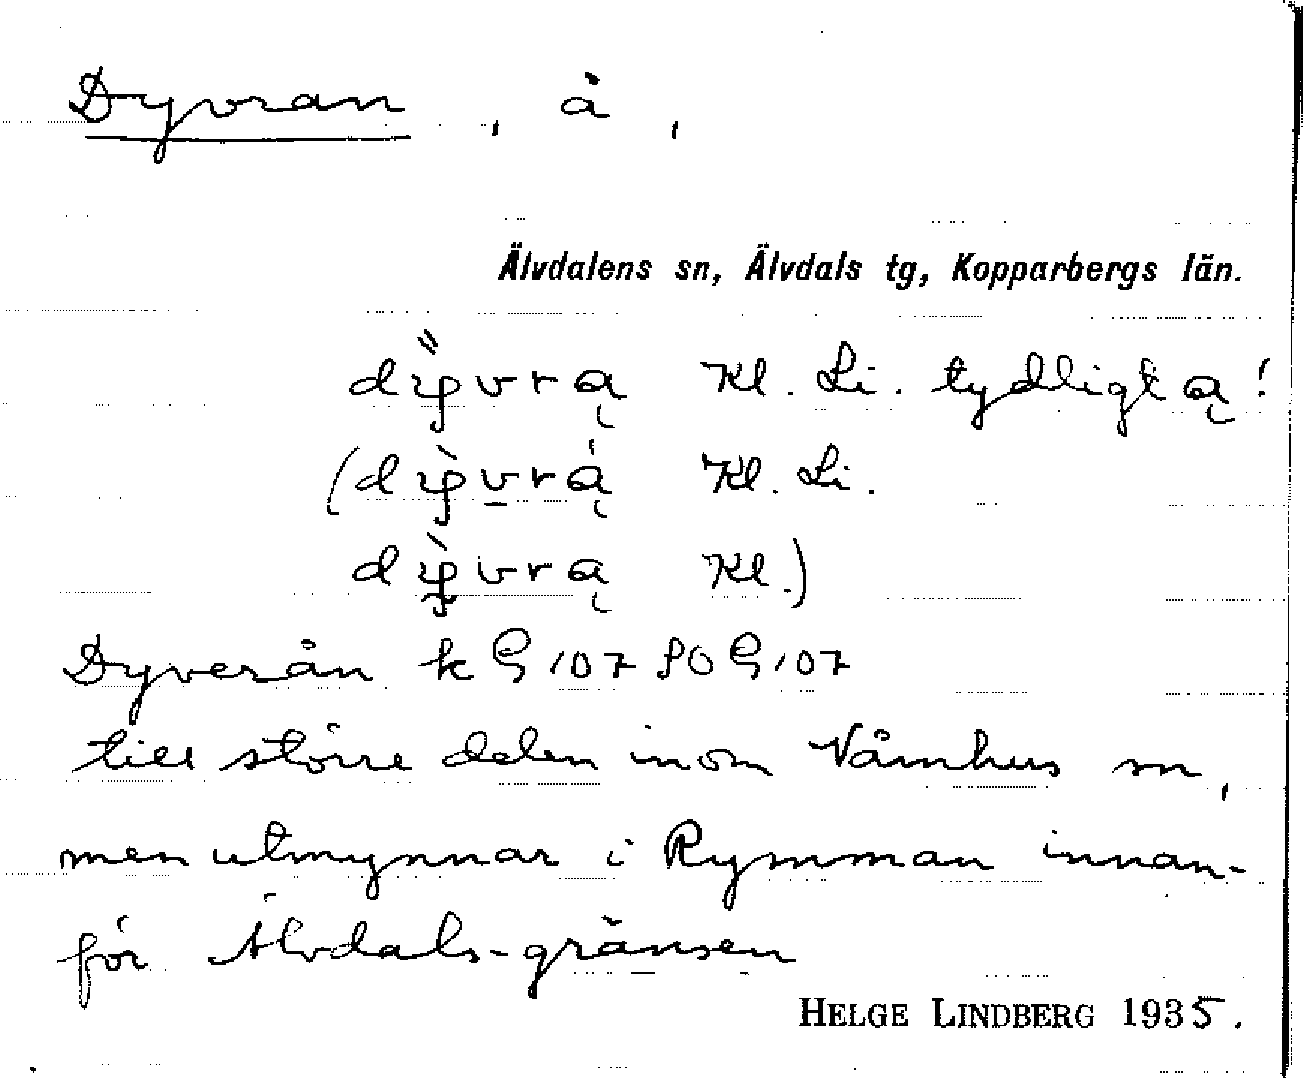 Dyvran, å,
Älvdalens sn, Älvdals tg, Kopparbergs län.
Kl. Li. tydligt ą!
Kl. Li.
Kl.)
Dyverån k G 107 SO G 107
till större delen inom Våmhus sn,
men utmynnar i Rymman innan-
för Älvdals-gränsen
HELGE LINDBERG 1935.